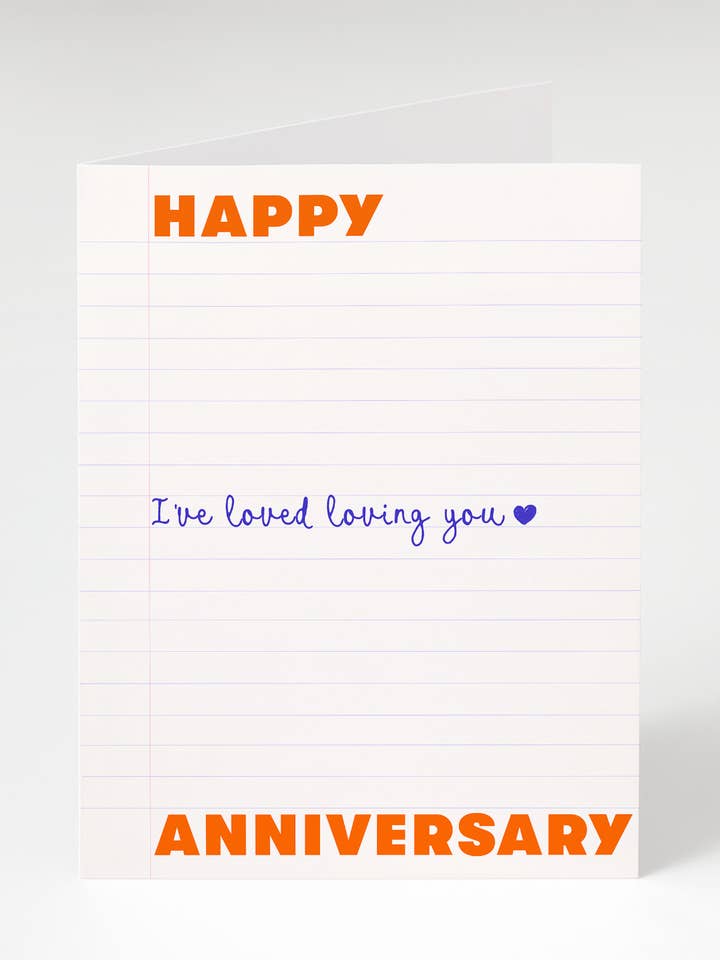 HAPPY
I've loved loving you
ANNIVERSARY